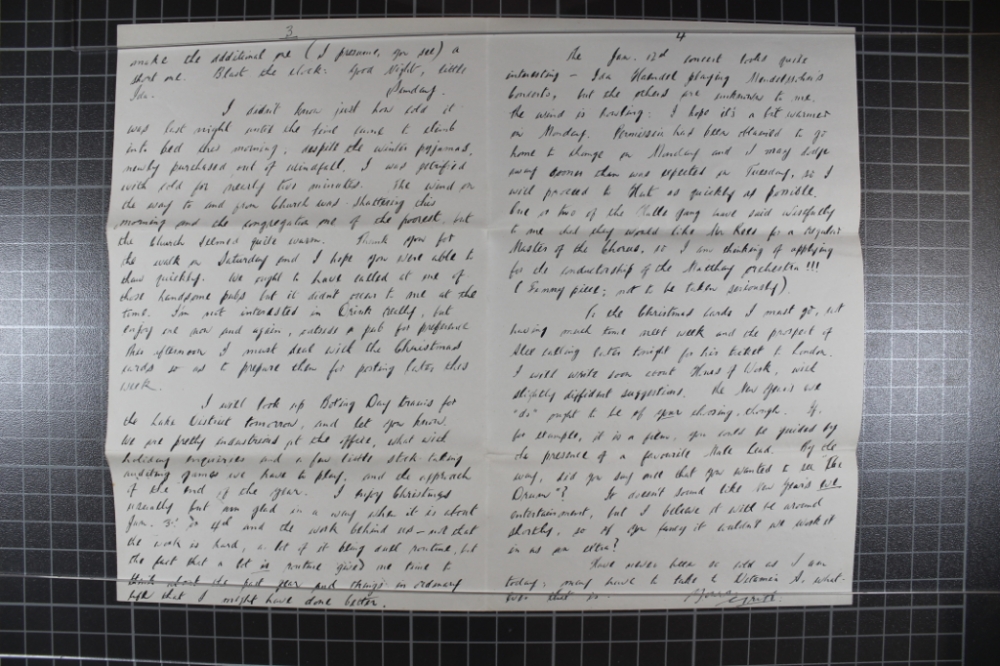 3
make the additional one (I presume, you see) a
short one. Blast the clock: Good Night, little
Ida.
Sunday.
I didn't know just how cold it
was last night until the time came to climb
into bed this morning; despite the winter pyjamas,
newly purchased out of windfall, I was petrified
with cold for nearly two minutes. The wind on
the way to and from Church was shattering this
morning and the congregation one of the poorest, but
the Church seemed quite warm. Thank you for
the walk on Saturday and I hope you were able to
thaw quickly. We ought to have called at one of
those handsome pubs but it didn't occur to me at the
time. I'm not interested in Drink really, but
enjoy one now and again, outside a pub for preference
This afternoon I must deal with the Christmas
cards so as to prepare them for posting later this
week.
I will look up Boxing Day trains for
the Lake District tomorrow, and let you know.
We are pretty industrious at the office, what with
holiday enquiries and a few little stock taking
auditing games we have to play, and the approach
of the end of the year. I enjoy Christmas
usually but am glad in a way when it is about
Jan. 3rd or 4th and the work behind us – not that
the work is hard, a lot of it being dull routine, but
the fact that a lot is routine gives me time to
think about the past year and things in ordinary
life that I might have done better.
4
The Jan. 12th concert looks quite
interesting – Ida Haendel playing Mendelssohn's
Concerto, but the others are unknown to me.
The wind is howling: I hope it's a bit warmer
on Monday. Permission has been obtained to go
home to change on Monday and I may dodge
away sooner than was expected on Tuesday, so I
will proceed to that as quickly as possible.
One or two of the Halle gang have said wistfully
to me that they would like Mr Rees for a regular
Master of the Chorus, so I am thinking of applying
for the conductorship of the Matthay orchestra!!!
(Funny piece; not to be taken seriously)
To the Christmas cards I must go, not
having much time next week and the prospect of
calling later tonight for his ticket to London.
I will write soon about Hours of Work, with
slightly diffident suggestions. The New Year's eve
"do" ought to be of your choosing, though. If,
for example, it is a film, you could be guided by
the presence of a favourite Male Lead. By the
way, did you say once that you wanted to see The
? It doesn't sound like New Year's eve
entertainment, but I believe it will be around
shortly, so if you fancy it couldn't we work it
in as an extra?
Have never been so cold as I am
today; may have to take to Vitamin A, what-
ever that is.